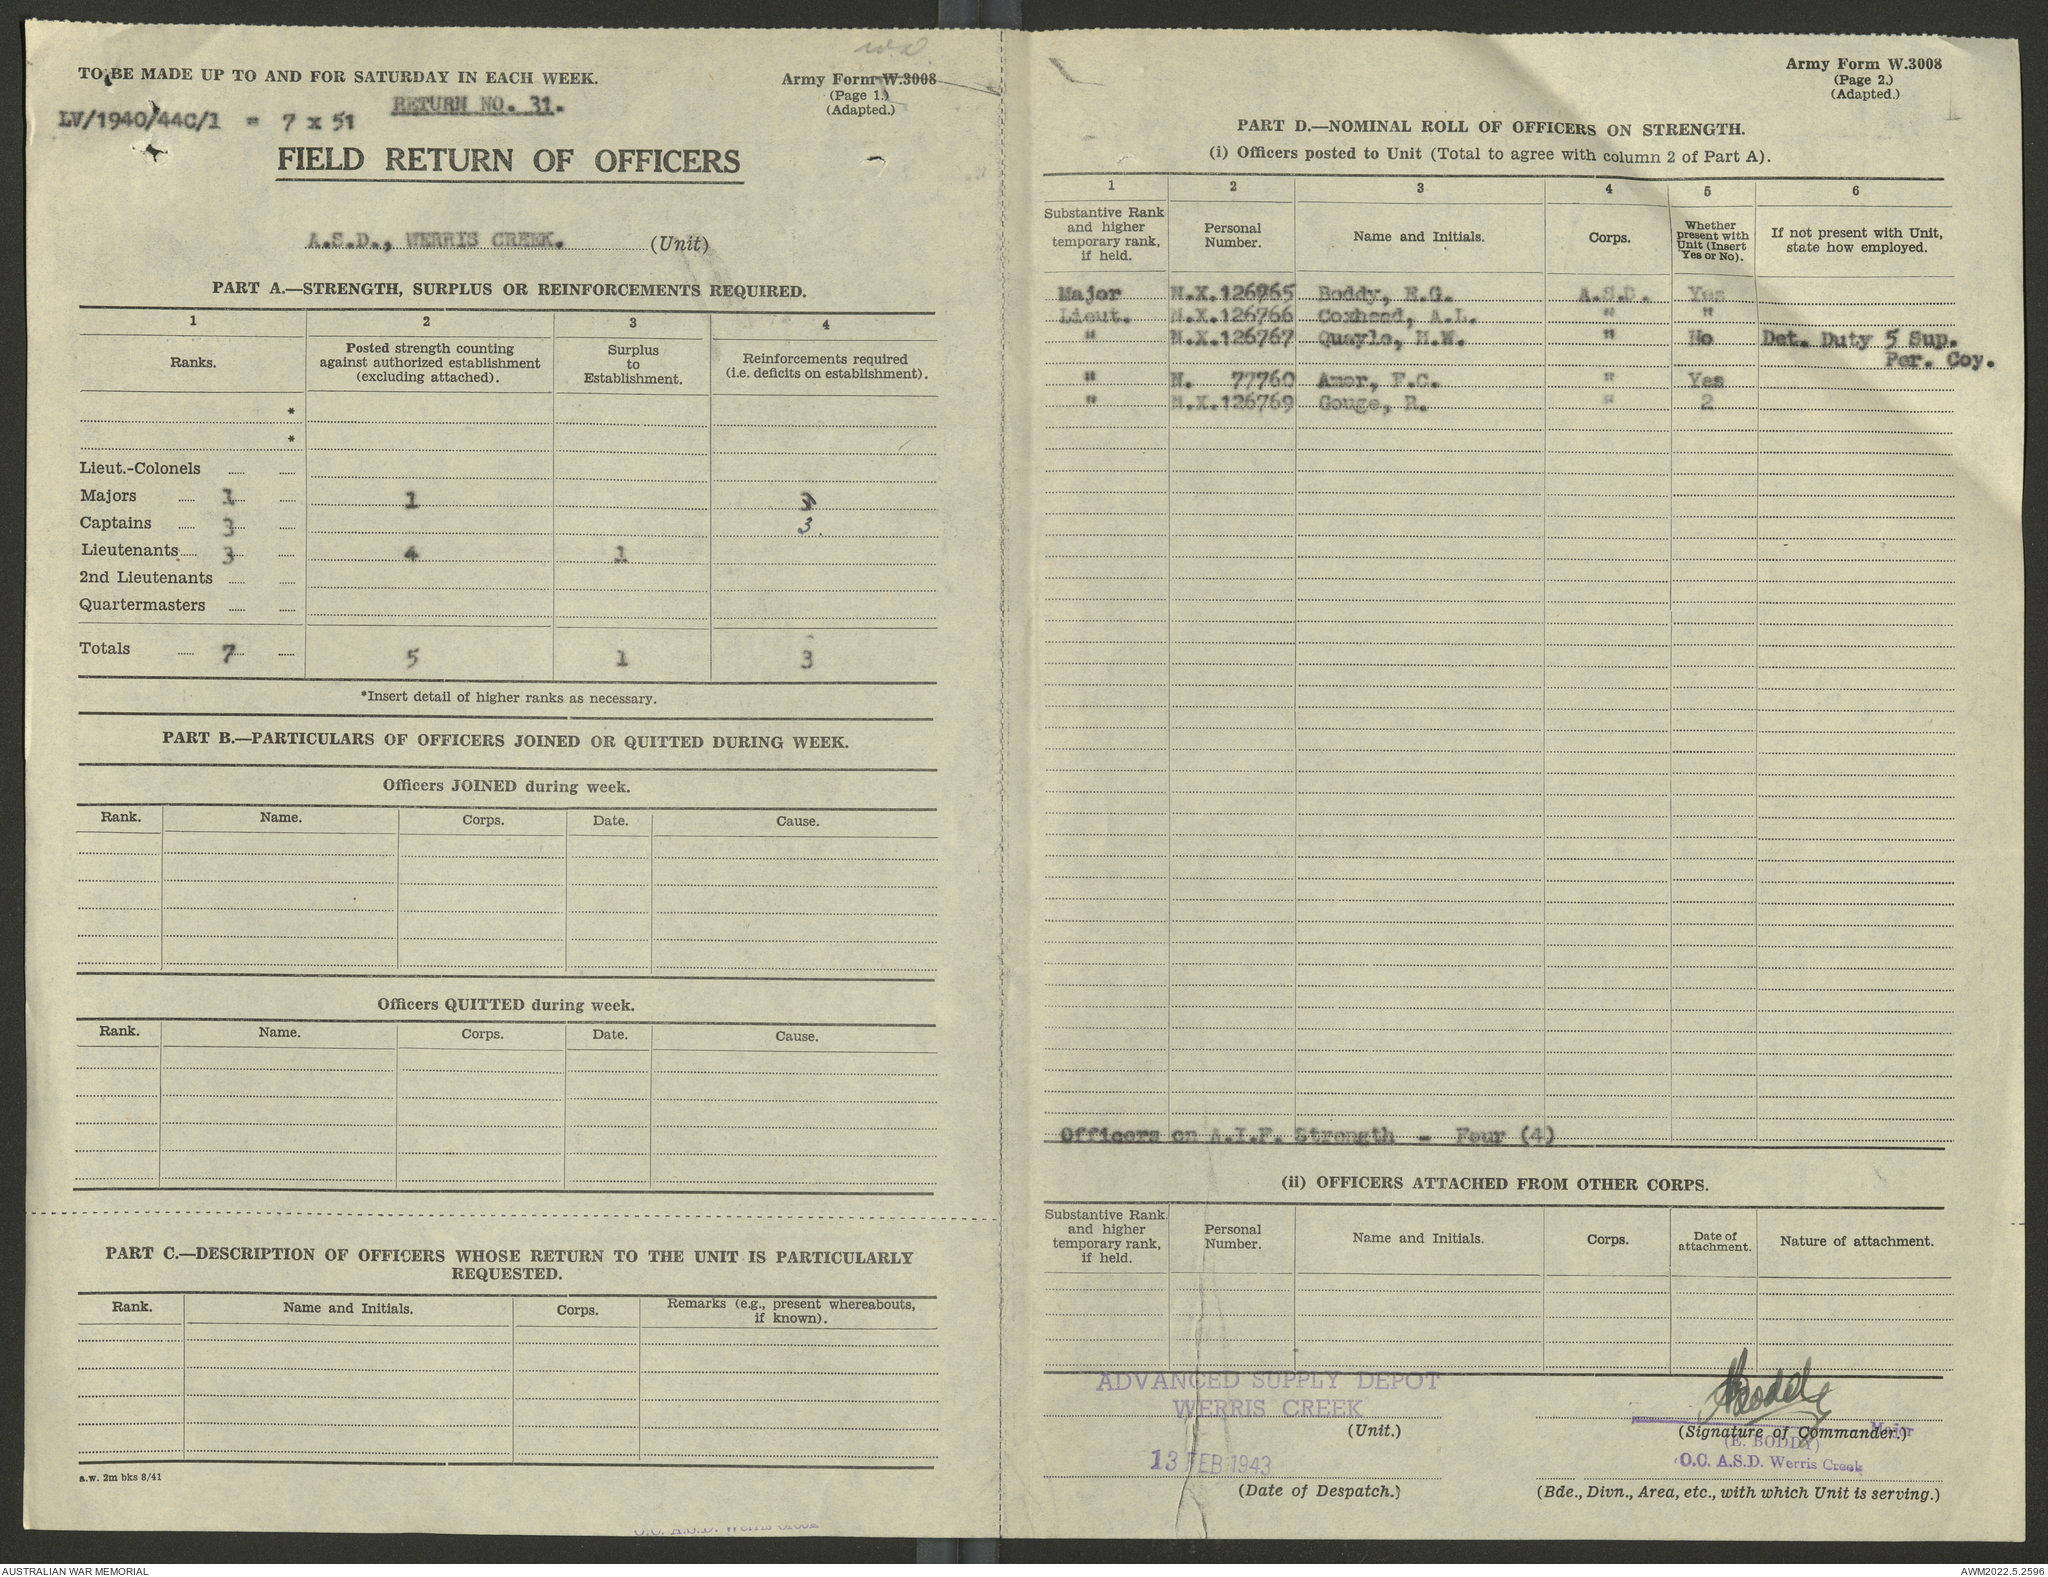 TO BE MADE UP TO AND FOR SATURDAY IN EACH WEEK.
Army Form W.3008
(Page 1.)
(Adapted.)
RETURN NO. 31.
LV/1940/44C/1 = 7 x 51
FIELD RETURN OF OFFICERS
A.S.D., WERRIS CREEK. (Unit)
PART A.—STRENGTH, SURPLUS OR REINFORCEMENTS REQUIRED.
1 2 3 4
Ranks. Posted strength counting against authorized establishment (excluding attached). Surplus to Establishment. Reinforcements required (i.e. deficits on establishment).
*
*
Lieut.-Colonels
Majors 1 1
Captains 3 3
Lieutenants 3 4 1
2nd Lieutenants
Quartermasters
Totals 7 5 1 3
*Insert detail of higher ranks as necessary.
PART B.—PARTICULARS OF OFFICERS JOINED OR QUITTED DURING WEEK.
Officers JOINED during week.
Rank. Name. Corps. Date. Cause.
Officers QUITTED during week.
Rank. Name. Corps. Date. Cause.
PART C.—DESCRIPTION OF OFFICERS WHOSE RETURN TO THE UNIT IS PARTICULARLY
REQUESTED.
Rank. Name and Initials. Corps. Remarks (e.g., present whereabouts, if known).
a.w. 2m bks 8/41
O.C. A.S.D. Werris Creek
Army Form W.3008
(Page 2.)
(Adapted.)
PART D.—NOMINAL ROLL OF OFFICERS ON STRENGTH.
(i) Officers posted to Unit (Total to agree with column 2 of Part A).
1 2 3 4 5 6
Substantive Rank and higher temporary rank, if held. Personal Number. Name and Initials. Corps. Whether present with Unit (Insert Yes or No). If not present with Unit, state how employed.
Major N.X.126965 Boddy, E.G. A.S.D. Yes
Lieut. N.X.126766 Coxhead, A.L. " "
" N.X.126767 Quayle, H.W. " No Det. Duty 5 Sup.
Per. Coy.
" N. 77760 Amor, F.C. " Yes
" N.X.126769 Gouge, R. " 2
Officers on A.I.F. Strength - Four (4)
(ii) OFFICERS ATTACHED FROM OTHER CORPS.
Substantive Rank and higher temporary rank, if held. Personal Number. Name and Initials. Corps. Date of attachment. Nature of attachment.
ADVANCED SUPPLY DEPOT
WERRIS CREEK
(Unit.)
13 FEB 1943
(Date of Despatch.)
Boddy
Major
(Signature of Commander.)
(E. BODDY)
O.C. A.S.D. Werris Creek
(Bde., Divn., Area, etc., with which Unit is serving.)
AUSTRALIAN WAR MEMORIAL
AWM2022.5.2596